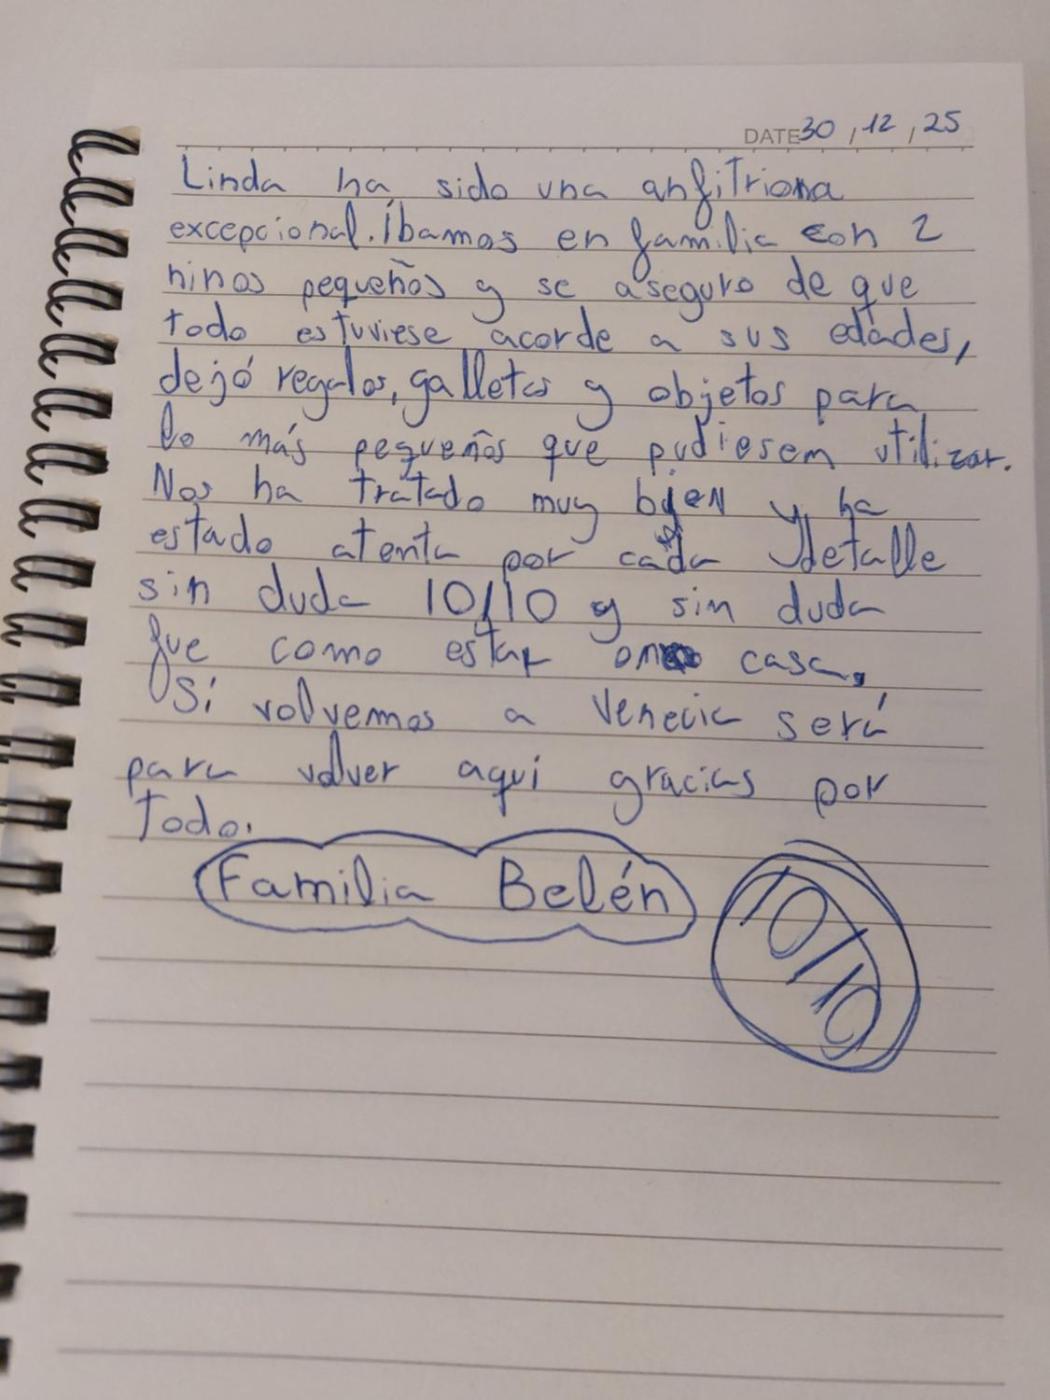 DATE 30, 12, 25
Linda ha sido una anfitriona
excepcional. Íbamos en familia con 2
ninos pequeños y se aseguro de que
todo estuviese acorde a sus edades,
dejó regalos, galletas y objetos para
lo más pequeños que pudiesem utilizar.
Nos ha tratado muy bien y ha
estado atenta por cada detalle
sin duda 10/10 y sin duda
fue como estar casa.
Si volvemos a Venecia será
para volver aquí gracias por
todo.
Familia Belén
10/10